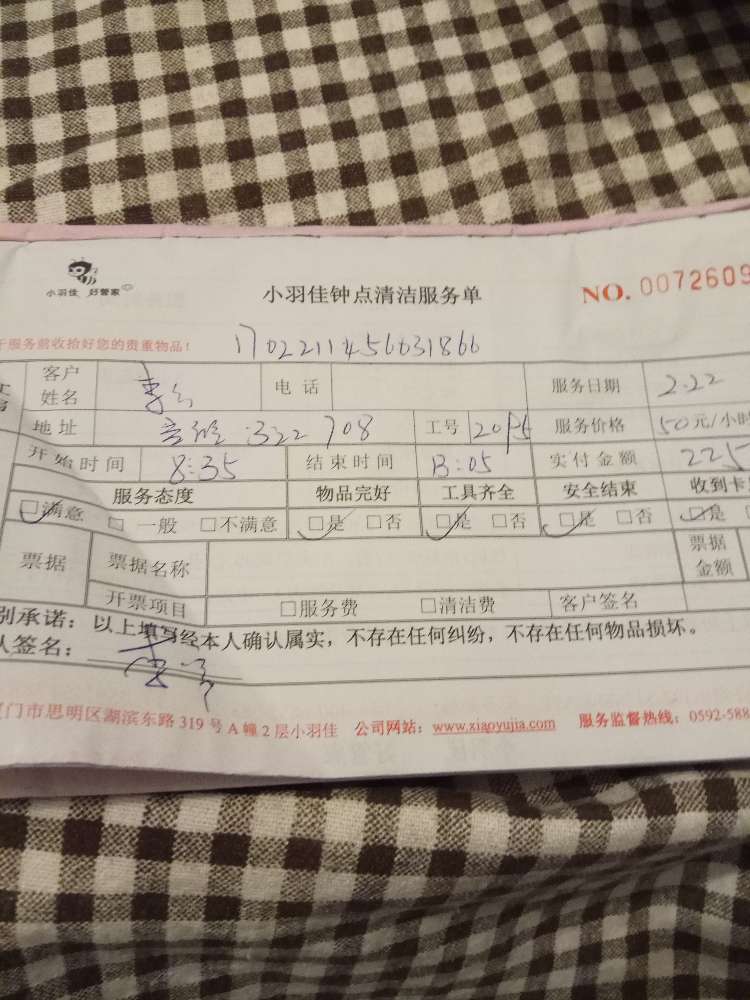 小羽佳 好管家
小羽佳钟点清洁服务单
NO. 0072609
服务前收拾好您的贵重物品!
1702211456631866
客户姓名 电话 服务日期 2.22
地址 322 708 工号 服务价格 50元/小时
开始时间 8:35 结束时间 13:05 实付金额 225
服务态度 物品完好 工具齐全 安全结束 收到卡
□满意 □一般 □不满意 □是 □否 □是 □否 □是 □否 □是
票据 票据名称 票据金额
开票项目 □服务费 □清洁费 客户签名
别承诺:以上填写经本人确认属实,不存在任何纠纷,不存在任何物品损坏。
签名:
门市思明区湖滨东路319号A幢2层小羽佳 公司网站:www.xiaoyujia.com 服务监督热线:0592-588